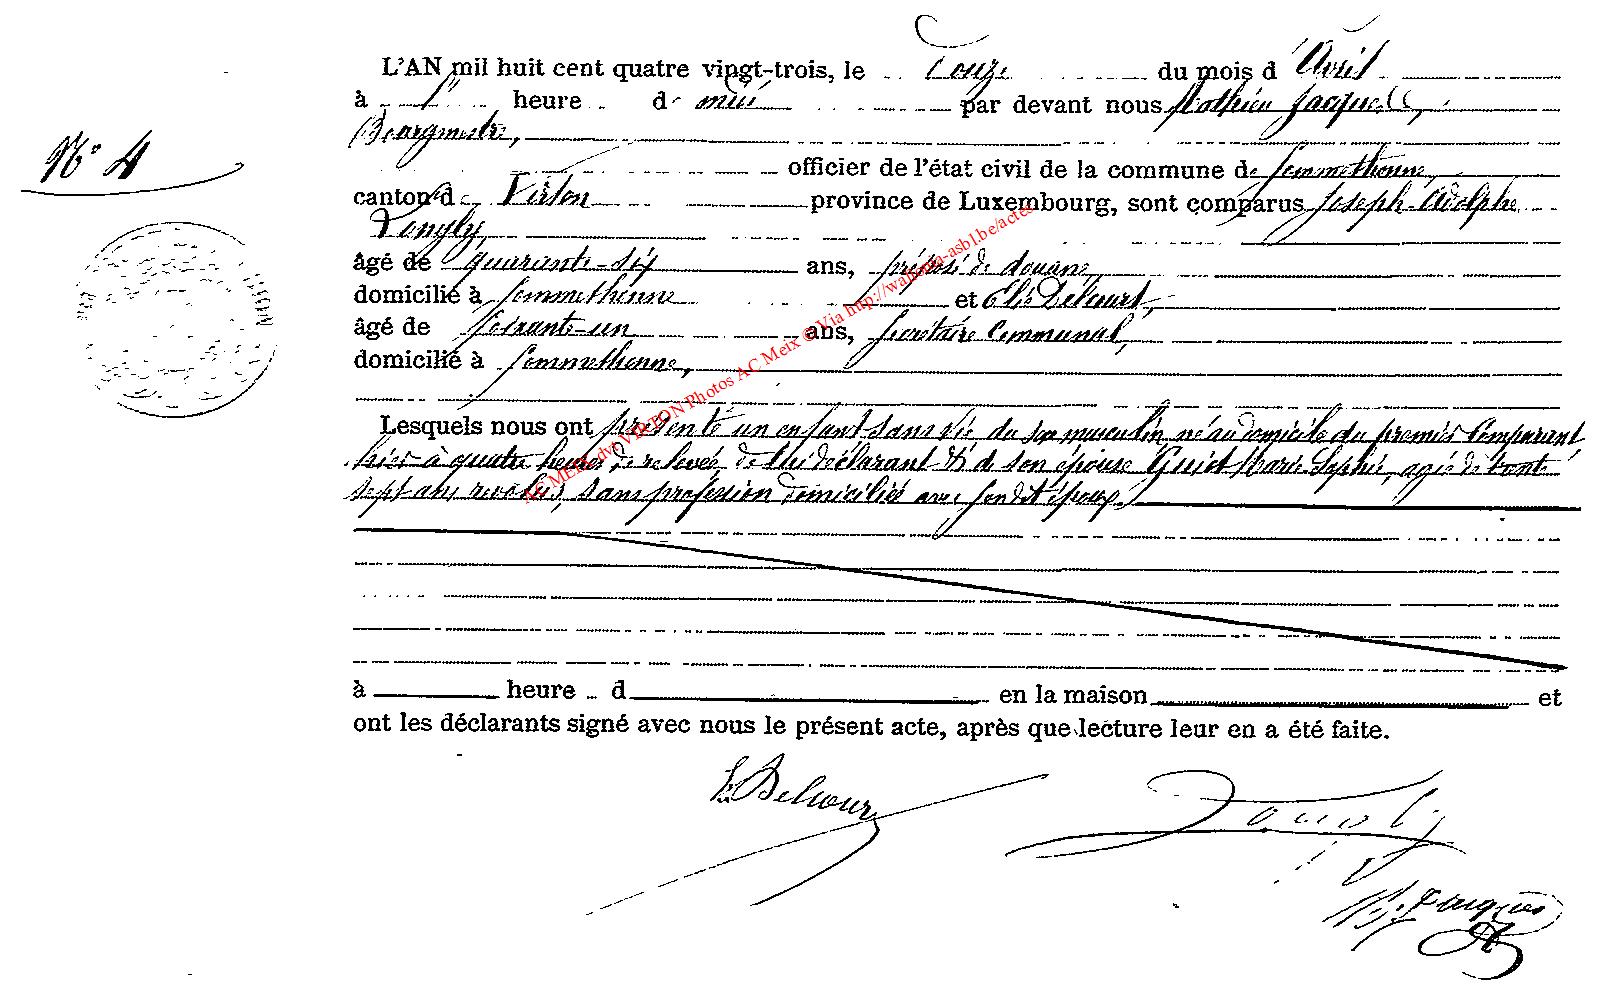 L'AN mil huit cent quatre vingt-trois, le Douze du mois d'Avril
à 1ʳᵉ heure de midi par devant nous Mathieu Jacques,
Bourgmestre,
officier de l'état civil de la commune de Sommethonne,
N° 4
canton de Virton province de Luxembourg, sont comparus Joseph-Adolphe
âgé de quarante-six ans, préposé de douane,
domicilié à Sommethonne et Elie Delcourt,
âgé de soixante-un ans, Secrétaire Communal,
domicilié à Sommethonne,
Lesquels nous ont présenté un enfant sans vie du sexe masculin, né au domicile du premier Comparant
hier à quatre heures de relevée, de lui déclarant & de son épouse Guiot Marie Sophie, agée de trente
sept ans revolus, sans profession domiciliée avec son dit époux.
à heure d en la maison et
ont les déclarants signé avec nous le présent acte, après que lecture leur en a été faite.
E. Delcourt
M. Jacques
AC MEIX-dvt-VIRTON Photos AC Meix © Via http://wallonia-asbl.be/actes